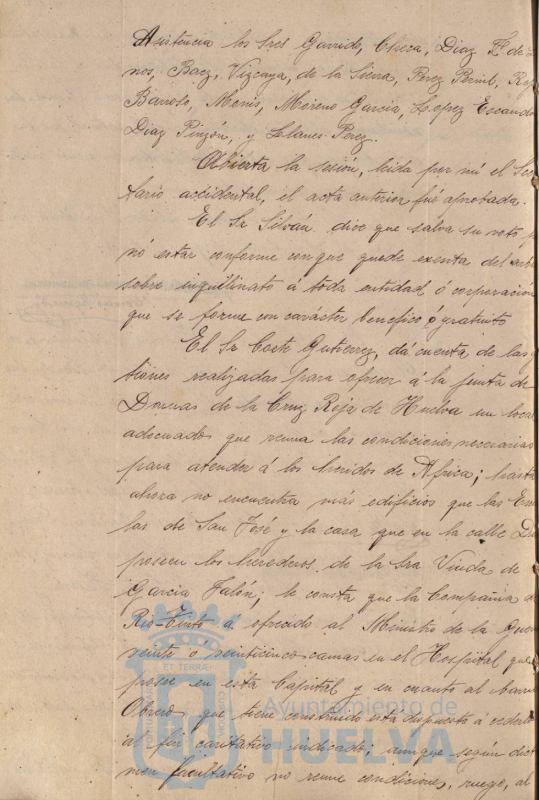 Asistencia los Sres Garrido, Checa, Diaz Fz de L
nos, Baez, Vizcaya, de la Sierra, Perez Pernil, Re
Barroso, Monis, Moreno Garcia, Lopez Escando
Diaz Pinzón, y Llanes Perez.
Abierta la sesión, leida por mi el Secre
tario accidental, el acta anterior fué aprobada.
El Sr Silván dice que salva su voto p
nó estar conforme con que quede exenta del arbi
sobre inquilinato á toda entidad ó corporación
que se forme con carácter benefico ó gratuito
El Sr Corte Gutierrez, dá cuenta de las g
tiones realizadas para ofrecer á la junta de
Damas de la Cruz Roja de Huelva un local
adecuado que reuna las condiciones necesarias
para atender á los heridos de Africa; hasta
ahora no encuentra más edificios que las Escue
las de San José y la casa que en la calle
poseen los herederos de la Sra Viuda de
Garcia Jalón; le consta que la Compañia de
Rio-Tinto á ofrecido al Ministro de la Guer
veinte ó veinticinco camas en el Hospital que
posee en esta Capital y en cuanto al barrio
Obrero, que tiene construido está dispuesto á cederlo
al fin caritativo indicado; aunque según dicta
men facultativo no reune condiciones, ruega, al
ET TERRAE
Ayuntamiento de
HUELVA